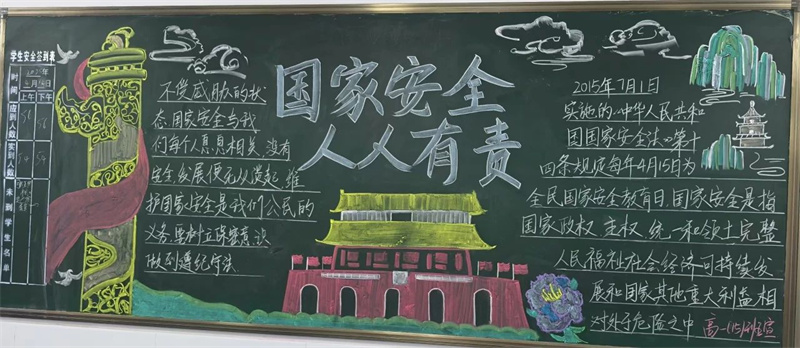 学生安全签到表
时间
年
月 日
上午 下午
应到人数
56 56
实到人数
54 54
未到学生名单
不受威胁的状
态,国家安全与我
们每个人息息相关,没有
安全发展便无从谈起,维
护国家安全是我们公民的
义务,要树立保密意识
做到遵纪守法
国家安全
人人有责
2015年7月1日
实施的《中华人民共和
国国家安全法》第十
四条规定每年4月15日为
全民国家安全教育日,国家安全是指
国家政权 主权 统一和领土完整
人民福祉 社会经济可持续发
展和国家其他重大利益相
对处于危险之中
高一(15)班宣